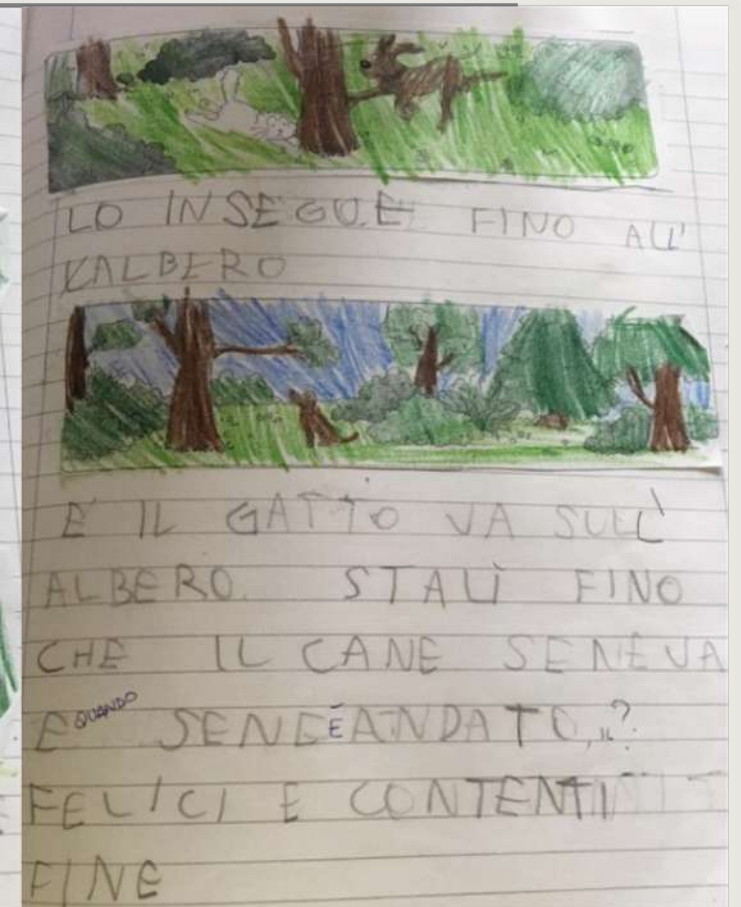 LO INSEGUE FINO ALL'
ALBERO
E IL GATTO VA SULL'
ALBERO. STALÌ FINO
CHE IL CANE SENEVA
E QUANDO SENE È ANDATO, IL?
FELICI E CONTENTI
FINE